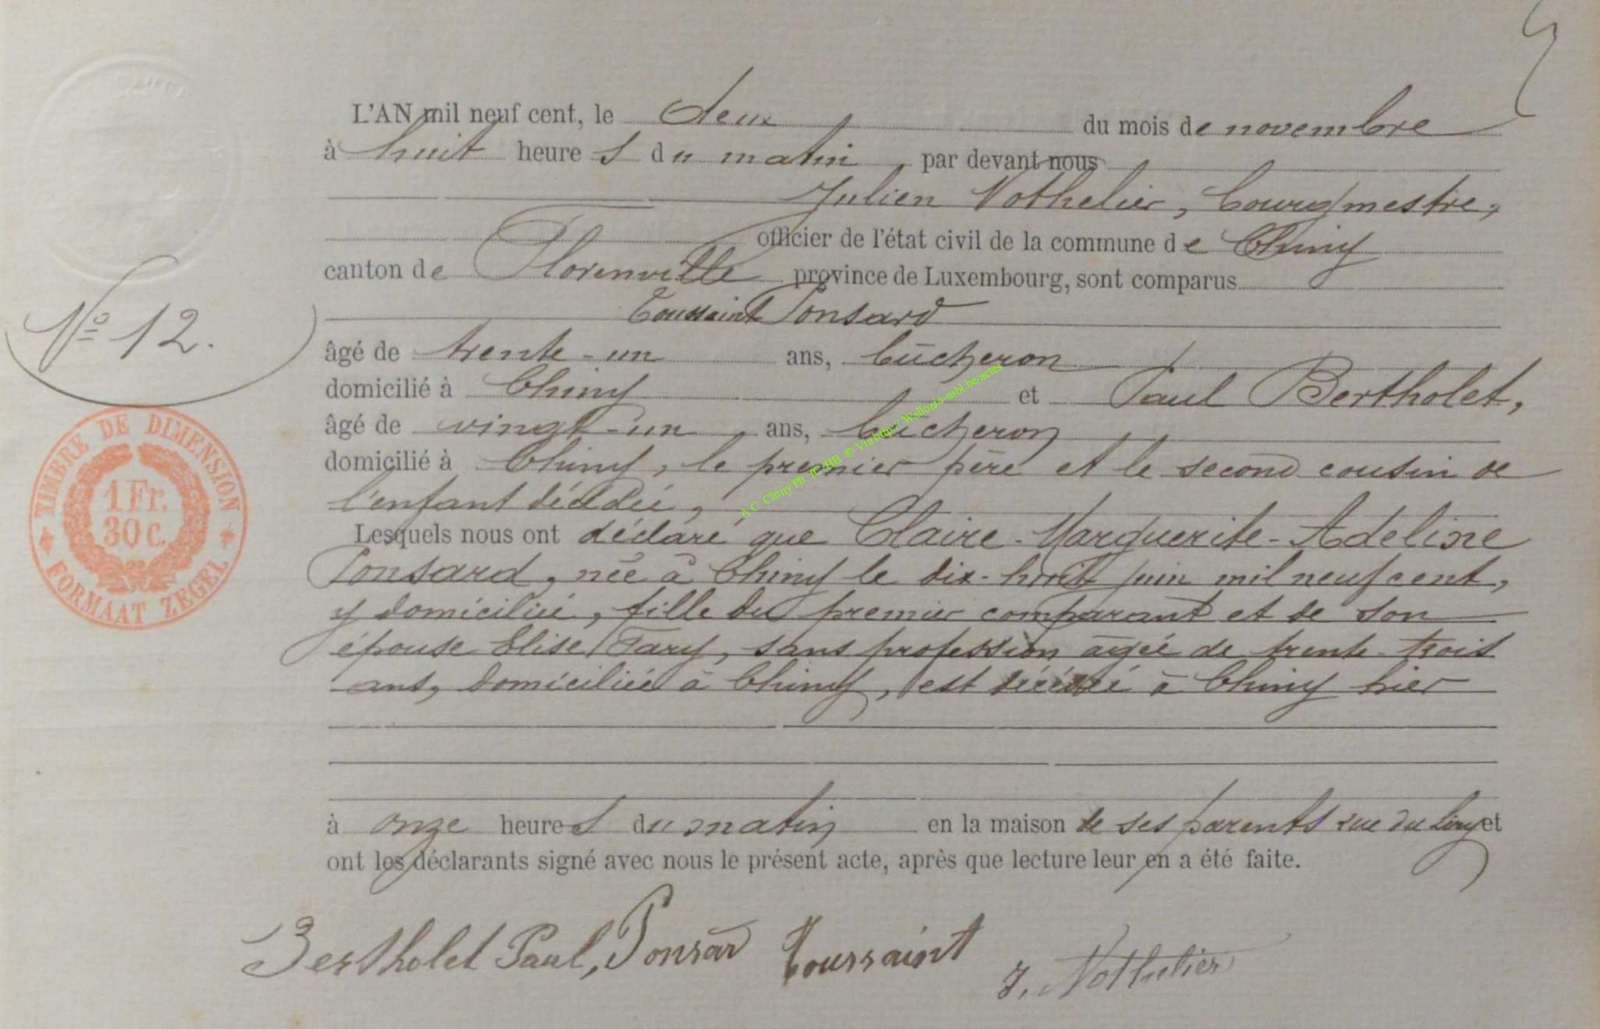 L'AN mil neuf cent, le deux du mois de novembre
à huit heures du matin, par devant nous
Julien Nothelier, bourgmestre,
officier de l'état civil de la commune de Chiny
canton de Florenville province de Luxembourg, sont comparus
Toussaint Ponsard
âgé de trente-un ans, bûcheron
domicilié à Chiny et Paul Bertholet,
âgé de vingt-un ans, bûcheron
domicilié à Chiny, le premier père et le second cousin de
l'enfant décédée,
Lesquels nous ont déclaré que Claire-Marguerite-Adeline
Ponsard, née à Chiny le dix-huit juin mil neuf cent,
y domiciliée, fille du premier comparant et de son
épouse Elise Fary, sans profession âgée de trente-trois
ans, domiciliée à Chiny, est décédée à Chiny hier
à onze heures du matin en la maison de ses parents rue du et
ont les déclarants signé avec nous le présent acte, après que lecture leur en a été faite.
Bertholet Paul, Ponsar Toussaint
J. Nothelier
No 12.
TIMBRE DE DIMENSION
1 Fr.
30 c.
FORMAAT ZEGEL